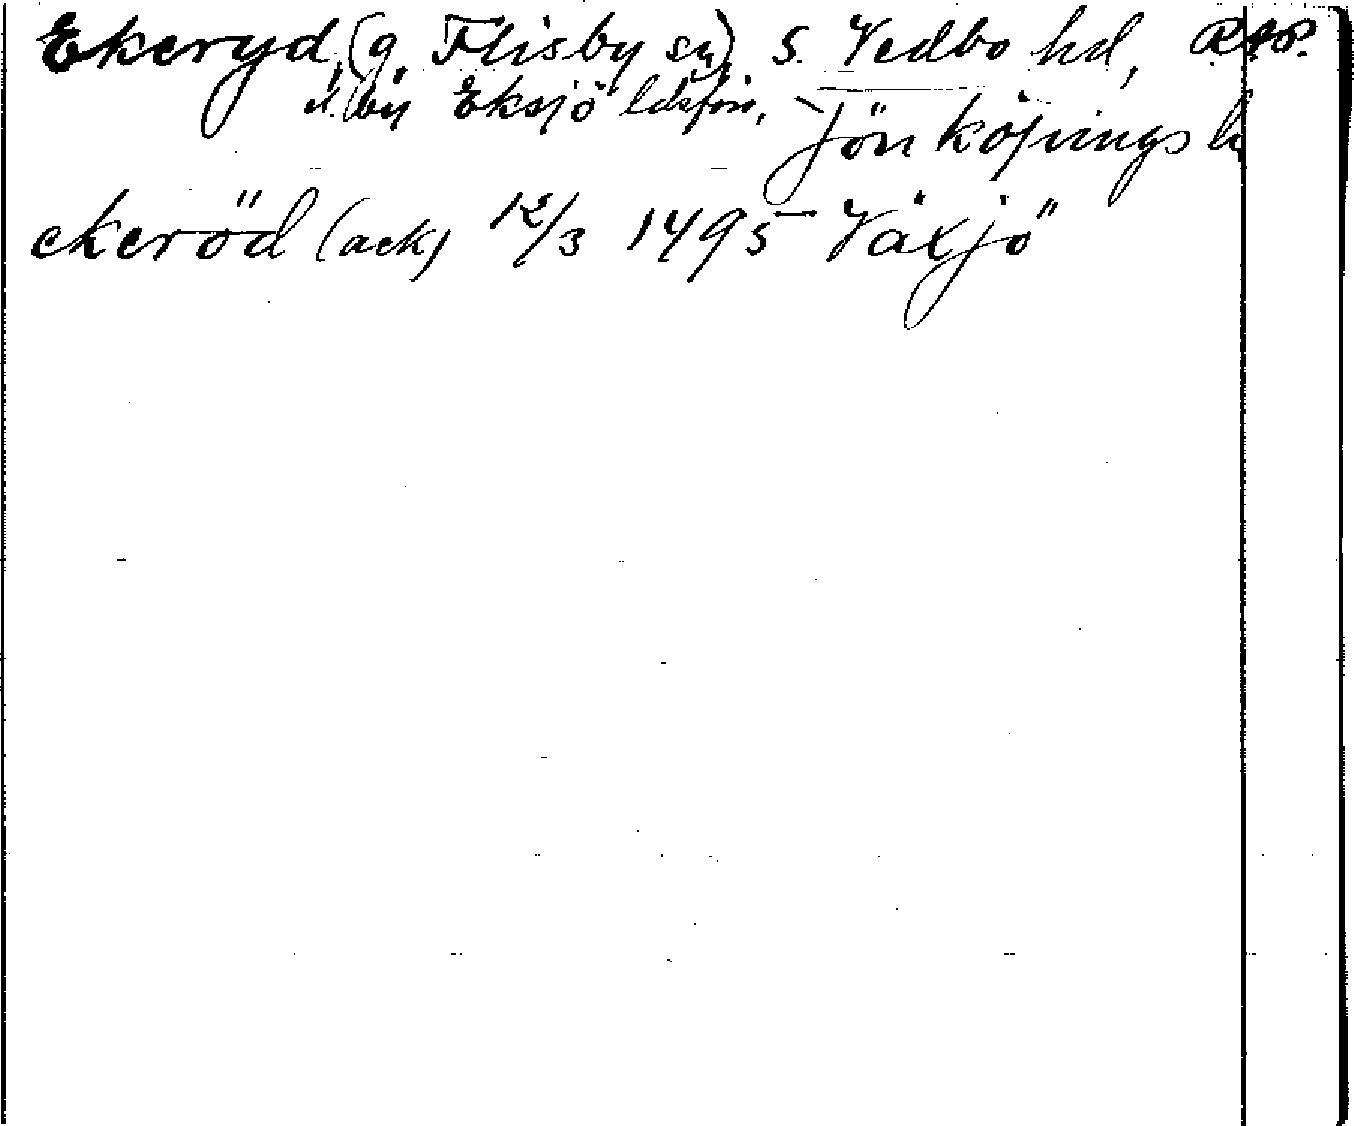 Ekeryd, (g. Flisby sn) S. Vedbo hd, RAp.
el. by Eksjö ldsförs,
Jönköpings l
ekeröd (ack) 12/3 1495 Växjö